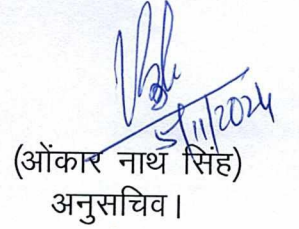 5/11/2024
(ओंकार नाथ सिंह)
अनुसचिव।